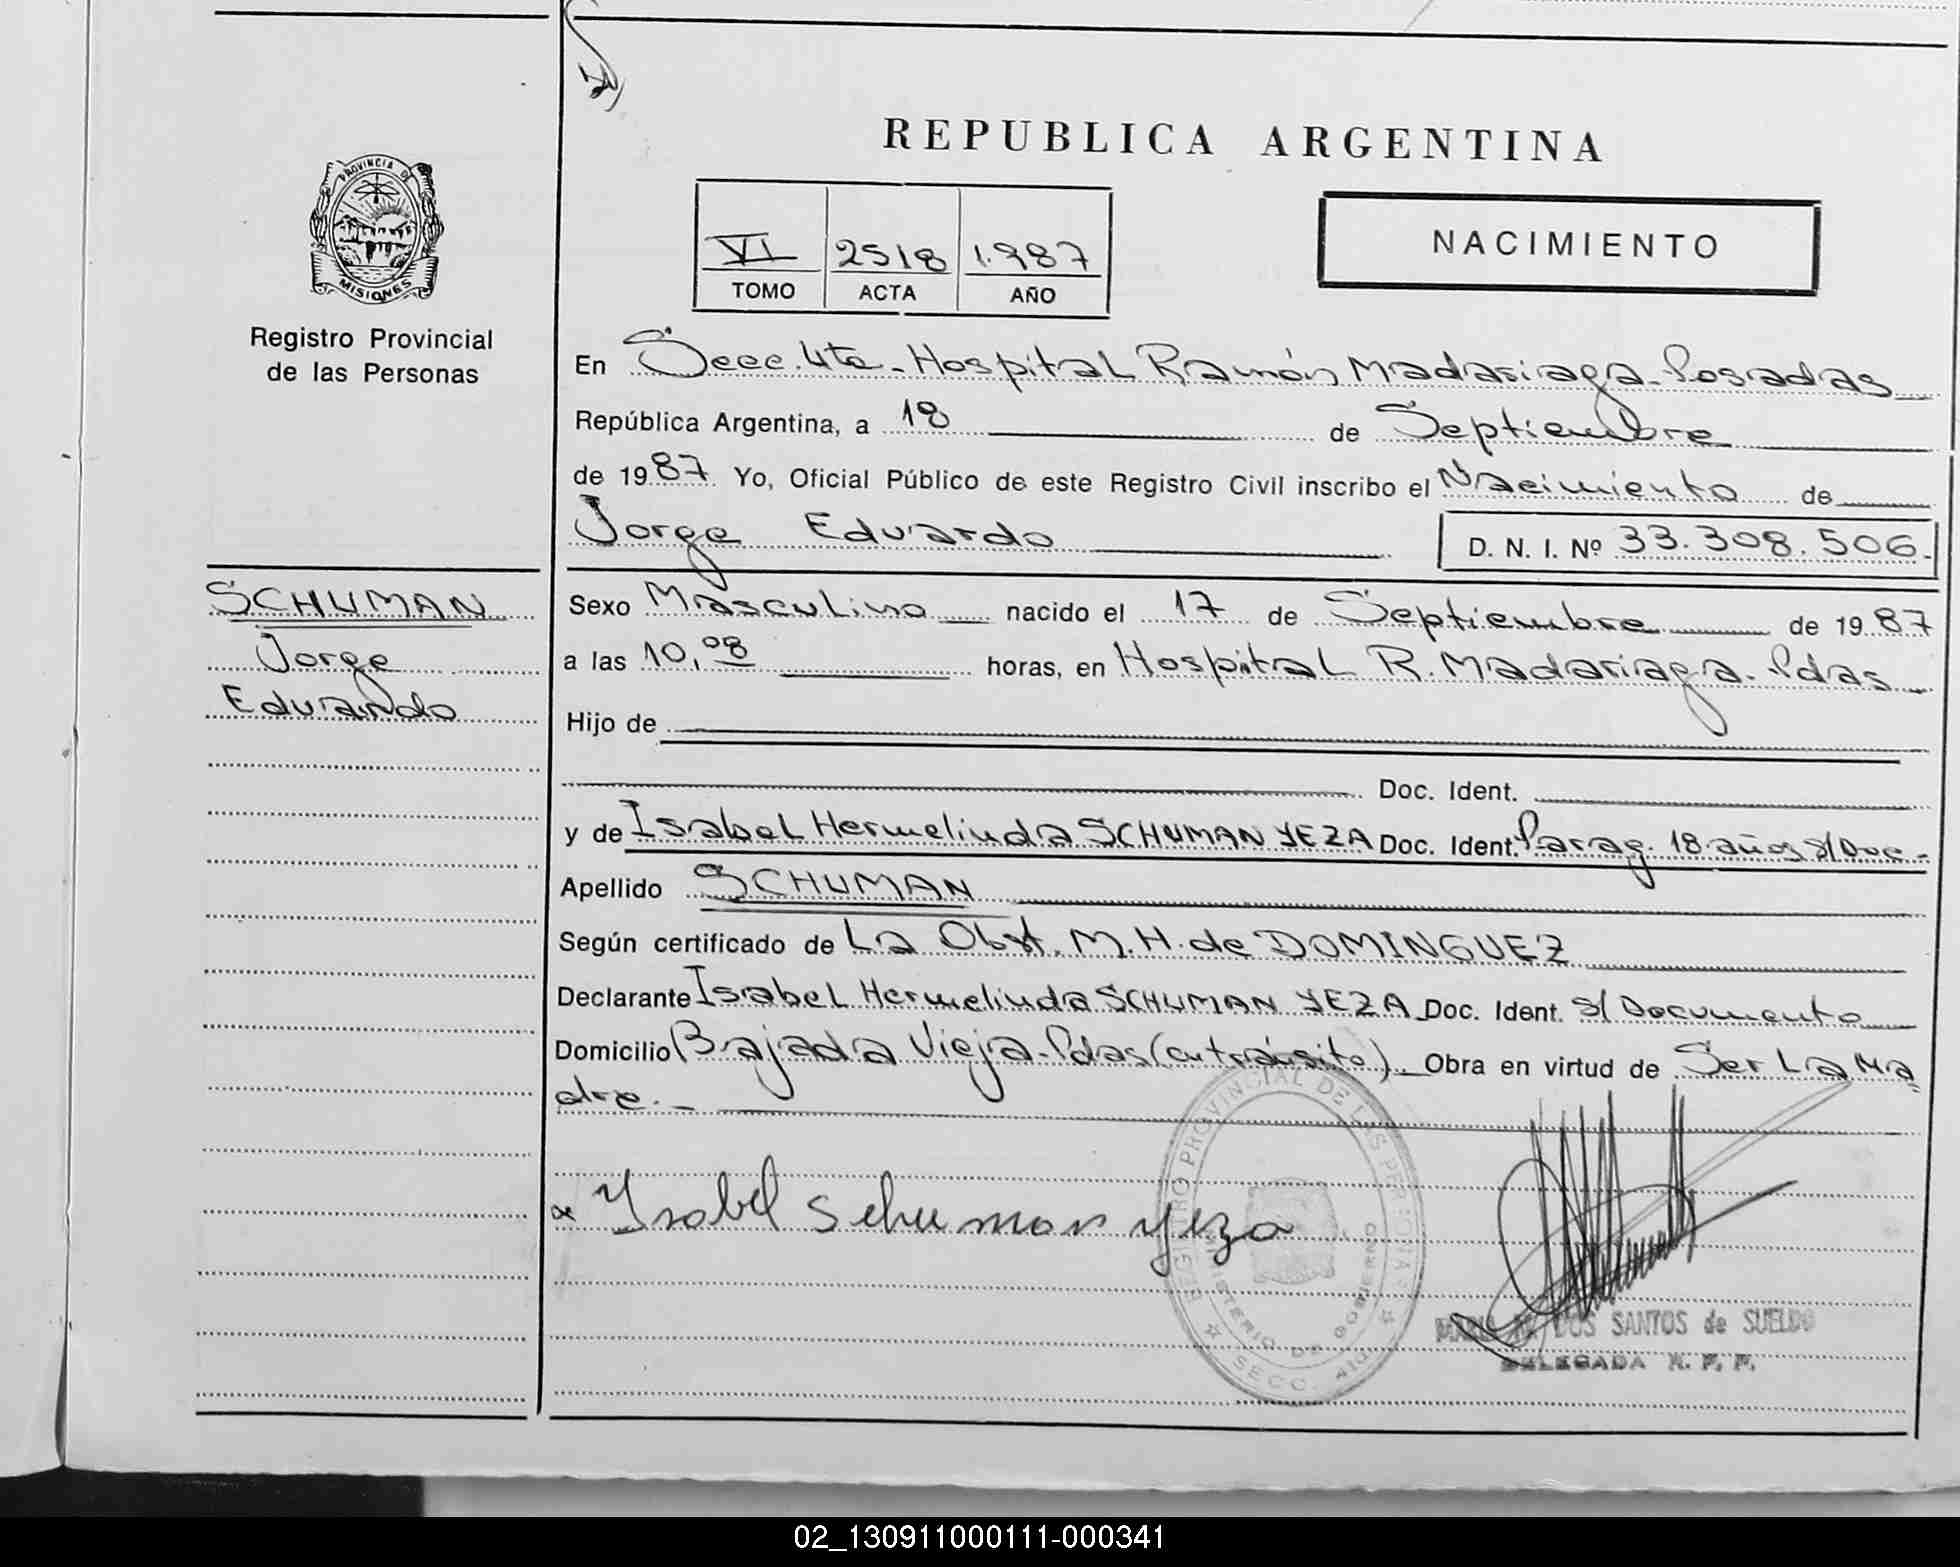 REPUBLICA ARGENTINA
PROVINCIA DE
MISIONES
Registro Provincial
de las Personas
VI 2518 1.987
TOMO ACTA AÑO
NACIMIENTO
En Secc. 4ta - Hospital Ramón Madariaga - Posadas
República Argentina, a 18 de Septiembre
de 1987 Yo, Oficial Público de este Registro Civil inscribo el Nacimiento de
Jorge Eduardo D. N. I. Nº 33.308.506.
SCHUMAN
Jorge
Eduardo
Sexo Masculino nacido el 17 de Septiembre de 1987
a las 10,08 horas, en Hospital R. Madariaga - Pdas
Hijo de
Doc. Ident.
y de Isabel Hermelinda SCHUMAN YEZA Doc. Ident. Parag. 18 años s/Doc -
Apellido SCHUMAN
Según certificado de La Obst. M. H. de DOMINGUEZ
Declarante Isabel Hermelinda SCHUMAN YEZA Doc. Ident. s/ Documento
Domicilio Bajada Vieja - Pdas (en tránsito). Obra en virtud de Ser La Ma
dre. -
Ysabel Schuman yeza
REGISTRO PROVINCIAL DE LAS PERSONAS
MINISTERIO DE GOBIERNO
SECC. 4ta
DOS SANTOS de SUELDO
DELEGADA
02_130911000111-000341